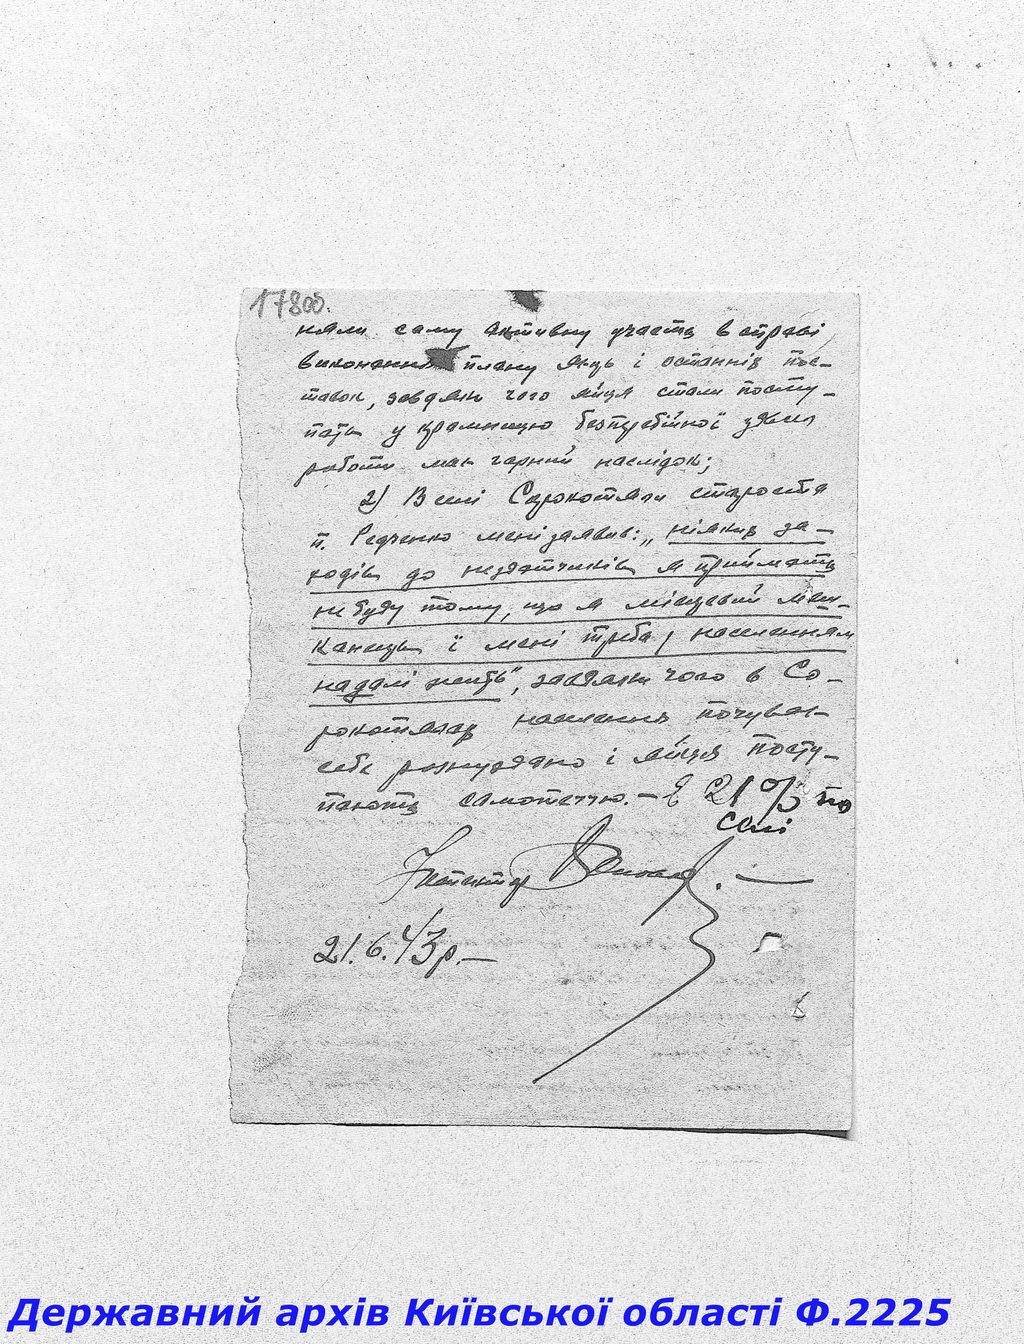 178об.
няли саму активну участь в справі
виконання плану яєць і останніх пос-
тавок, завдяки чого яйця стали посту-
пать у крамницю безперебійної
роботи має гарний наслідок;
2) В селі Сорокотяги староста
п. Редченко мені заявив: „ніяких за-
ходів до нездатчиків я приймать
не буду тому, що я місцевий меш-
канець і мені треба з населенням
надалі жить", завдяки чого в Со-
рокотягах населення почуває
себе розхулено і яйця посту-
пають самотеччю. — Є 21% по
селі
Інспектор
21.6.43р.—
Державний архів Київської області Ф.2225